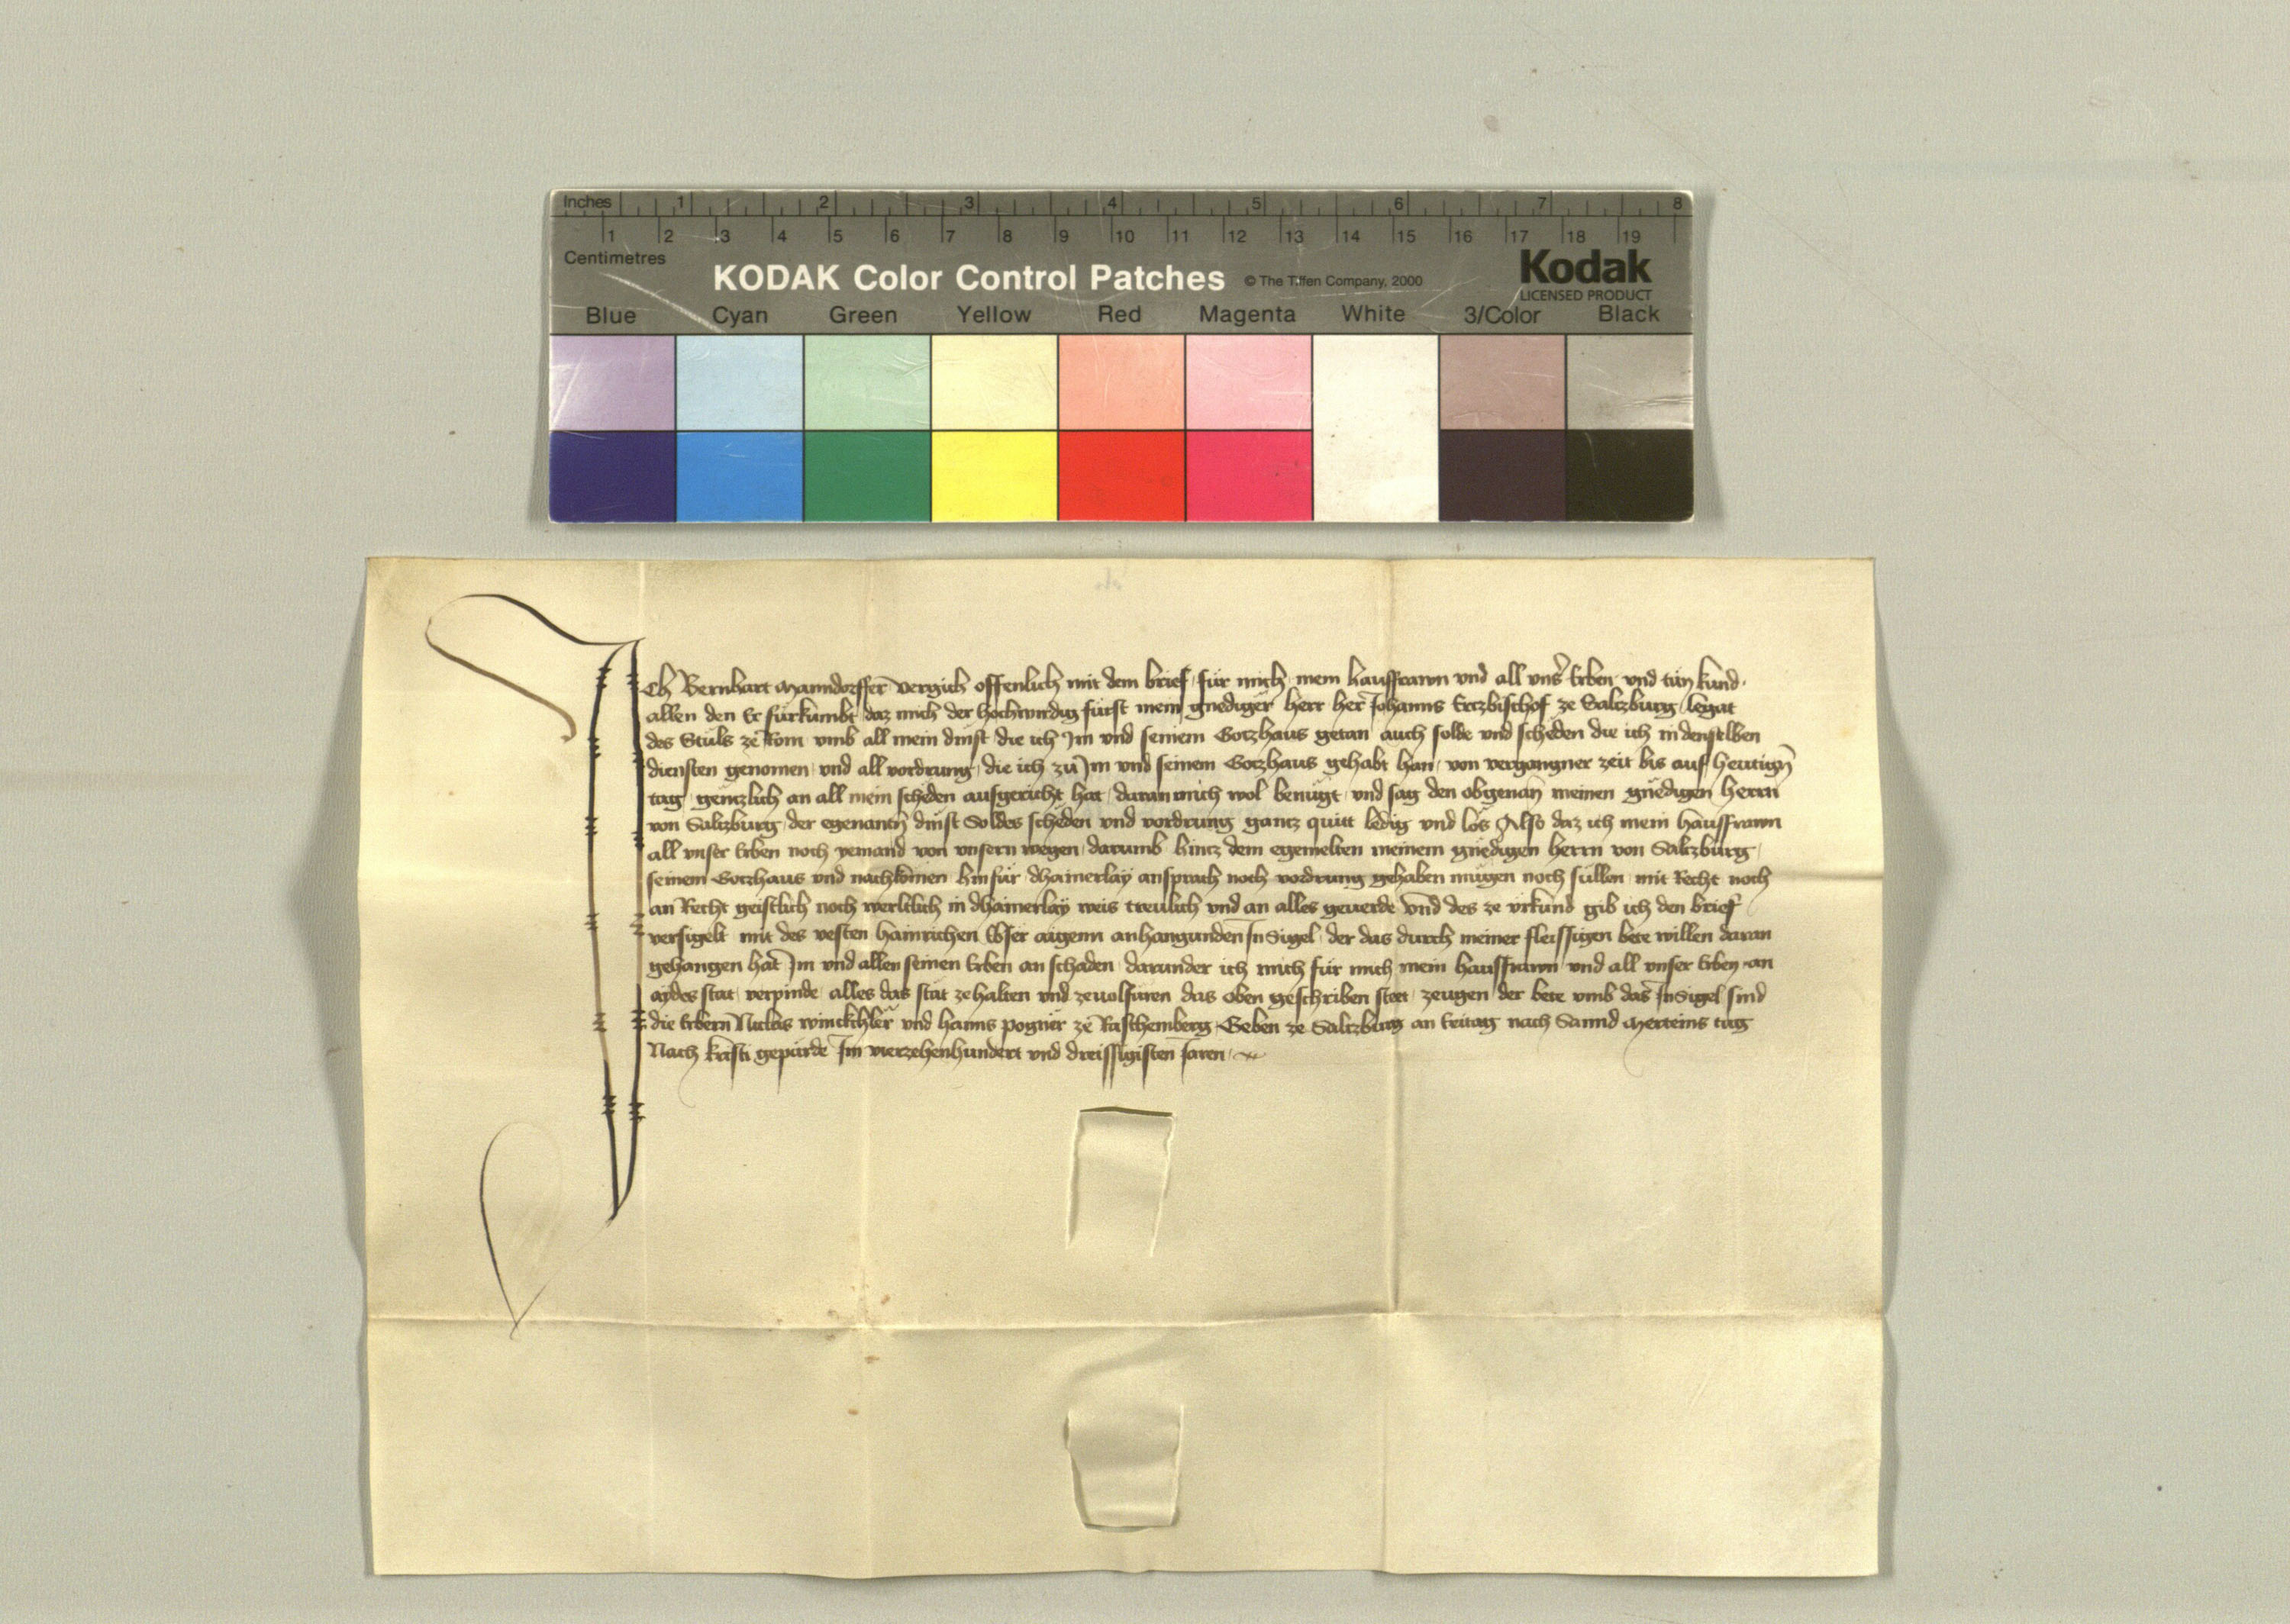 Inches 1 2 3 4 5 6 7 8
1 2 3 4 5 6 7 8 9 10 11 12 13 14 15 16 17 18 19
Centimetres
KODAK Color Control Patches © The Tiffen Company, 2000 Kodak
LICENSED PRODUCT
Blue Cyan Green Yellow Red Magenta White 3/Color Black
Ich Bernhart Manndorffer vergich offenlich mit dem brief für mich mein hausfrawn und all vnser Erben vnd tün kund
allen den Er fürkumbt daz mich der hochwirdig fürst mein gnediger herr her Johanns Ertzbischof ze Saltzburg legat
des Stuls ze Rom vmb all mein dinst die ich Im vnd seinem Gotzhaus getan auch solde vnd scheden die ich in denselben
diensten genomen vnd all vordrung die ich zu Im vnd seinem Gotzhaus gehabt han von vergangner zeit bis auf heutign
tag gentzlich an all mein scheden ausgericht hat daran mich wol benügt vnd sag den obgenan meinen gnedigen herrn
von Saltzburg der egenantn dinst Soldes scheden vnd vordrung gantz quitt ledig vnd los Also daz ich mein hausfrawn
all vnser Erben noch yemand von vnsern wegen darumb hintz dem egemelten meinem gnedigen herrn von Saltzburg
seinem Gotzhaus vnd nachkomen hinfür dhainerlay ansprach noch vordrung gehaben mügen noch süllen mit Recht noch
an Recht geistlich noch werltlich in dhainerlay weis treulich vnd an alles geuerde Vnd des ze vrkund gib ich den brief
versigelt mit des vesten hainrichen aigenn anhangunden InSigel der das durch meiner fleissigen bete willen daran
gehangen hat Im vnd allen seinen Erben an schaden darunder ich mich für mich mein hausfrawn vnd all vnser Erben an
aydes stat verpinde alles das stät ze halten vnd zeuolfüren das oben geschriben stet zeugen der bete vmb das InSigel sind
die Erbern Niclas winckchler vnd hanns pogner ze Raschemberg Geben ze Saltzburg an Freitag nach Sannd Merteins tag
Nach kristi gepürde Im vierzehenhundert vnd dreissigisten Jaren